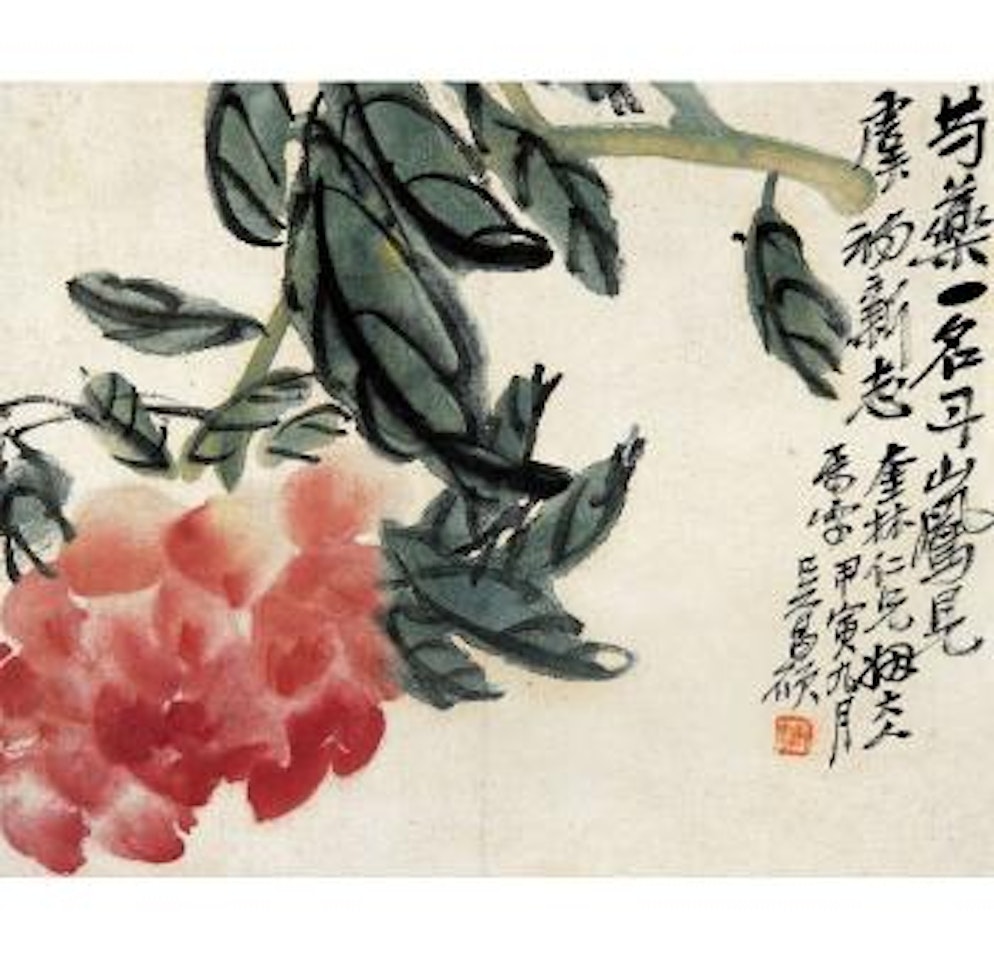 芍藥一名斗山鳳見
虞初新志 奎林仁兄姻大人
甲寅九月
吳昌碩